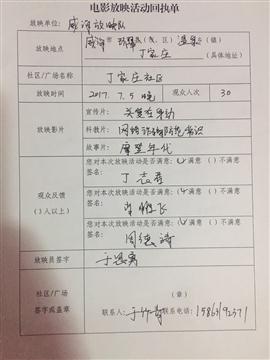 电影放映活动回执单
放映单位：威海放映队
放映地点 威海市 环翠县（市、区） 温泉乡（镇）
丁家庄
（具体地址）
社区/广场名称 丁家庄社区
放映时间 2017.7.5晚 观众人次 30
放映影片 宣传片：关爱在身边
科教片：网络诈骗防范常识
故事片：摩登年代
观众反馈
（3人以上）
您对本次放映活动是否满意：（✓）满意 （ ）不满意
签名：丁志
您对本次放映活动是否满意：（✓）满意 （ ）不满意
签名：飞
您对本次放映活动是否满意：（✓）满意 （ ）不满意
签名：周德
放映员签字 于
社区/广场
签字或盖章
（章）
联系人：于 联系电话：15863192371